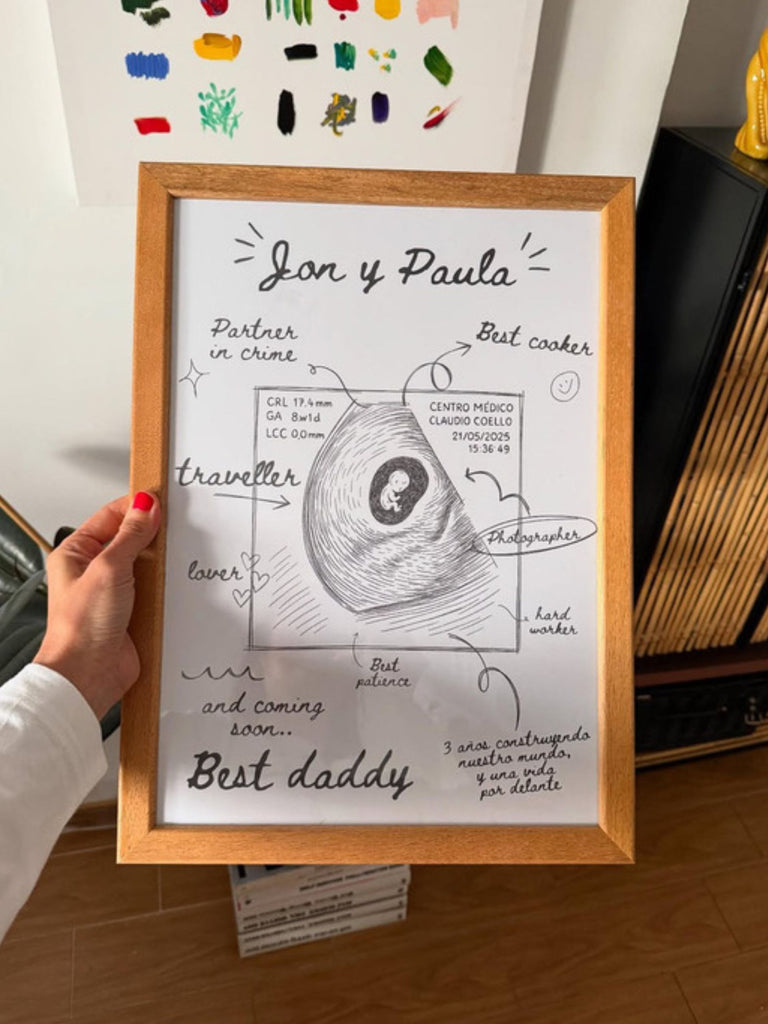 Jon y Paula
Partner
in crime
Best cooker
CRL 17.4mm
GA 8w1d
LCC 0,0mm
CENTRO MÉDICO
CLAUDIO COELLO
21/05/2025
15:36:49
traveller
Photographer
lover
hard
worker
Best
patience
and coming
soon..
Best daddy
3 años construyendo
nuestro mundo,
y una vida
por delante